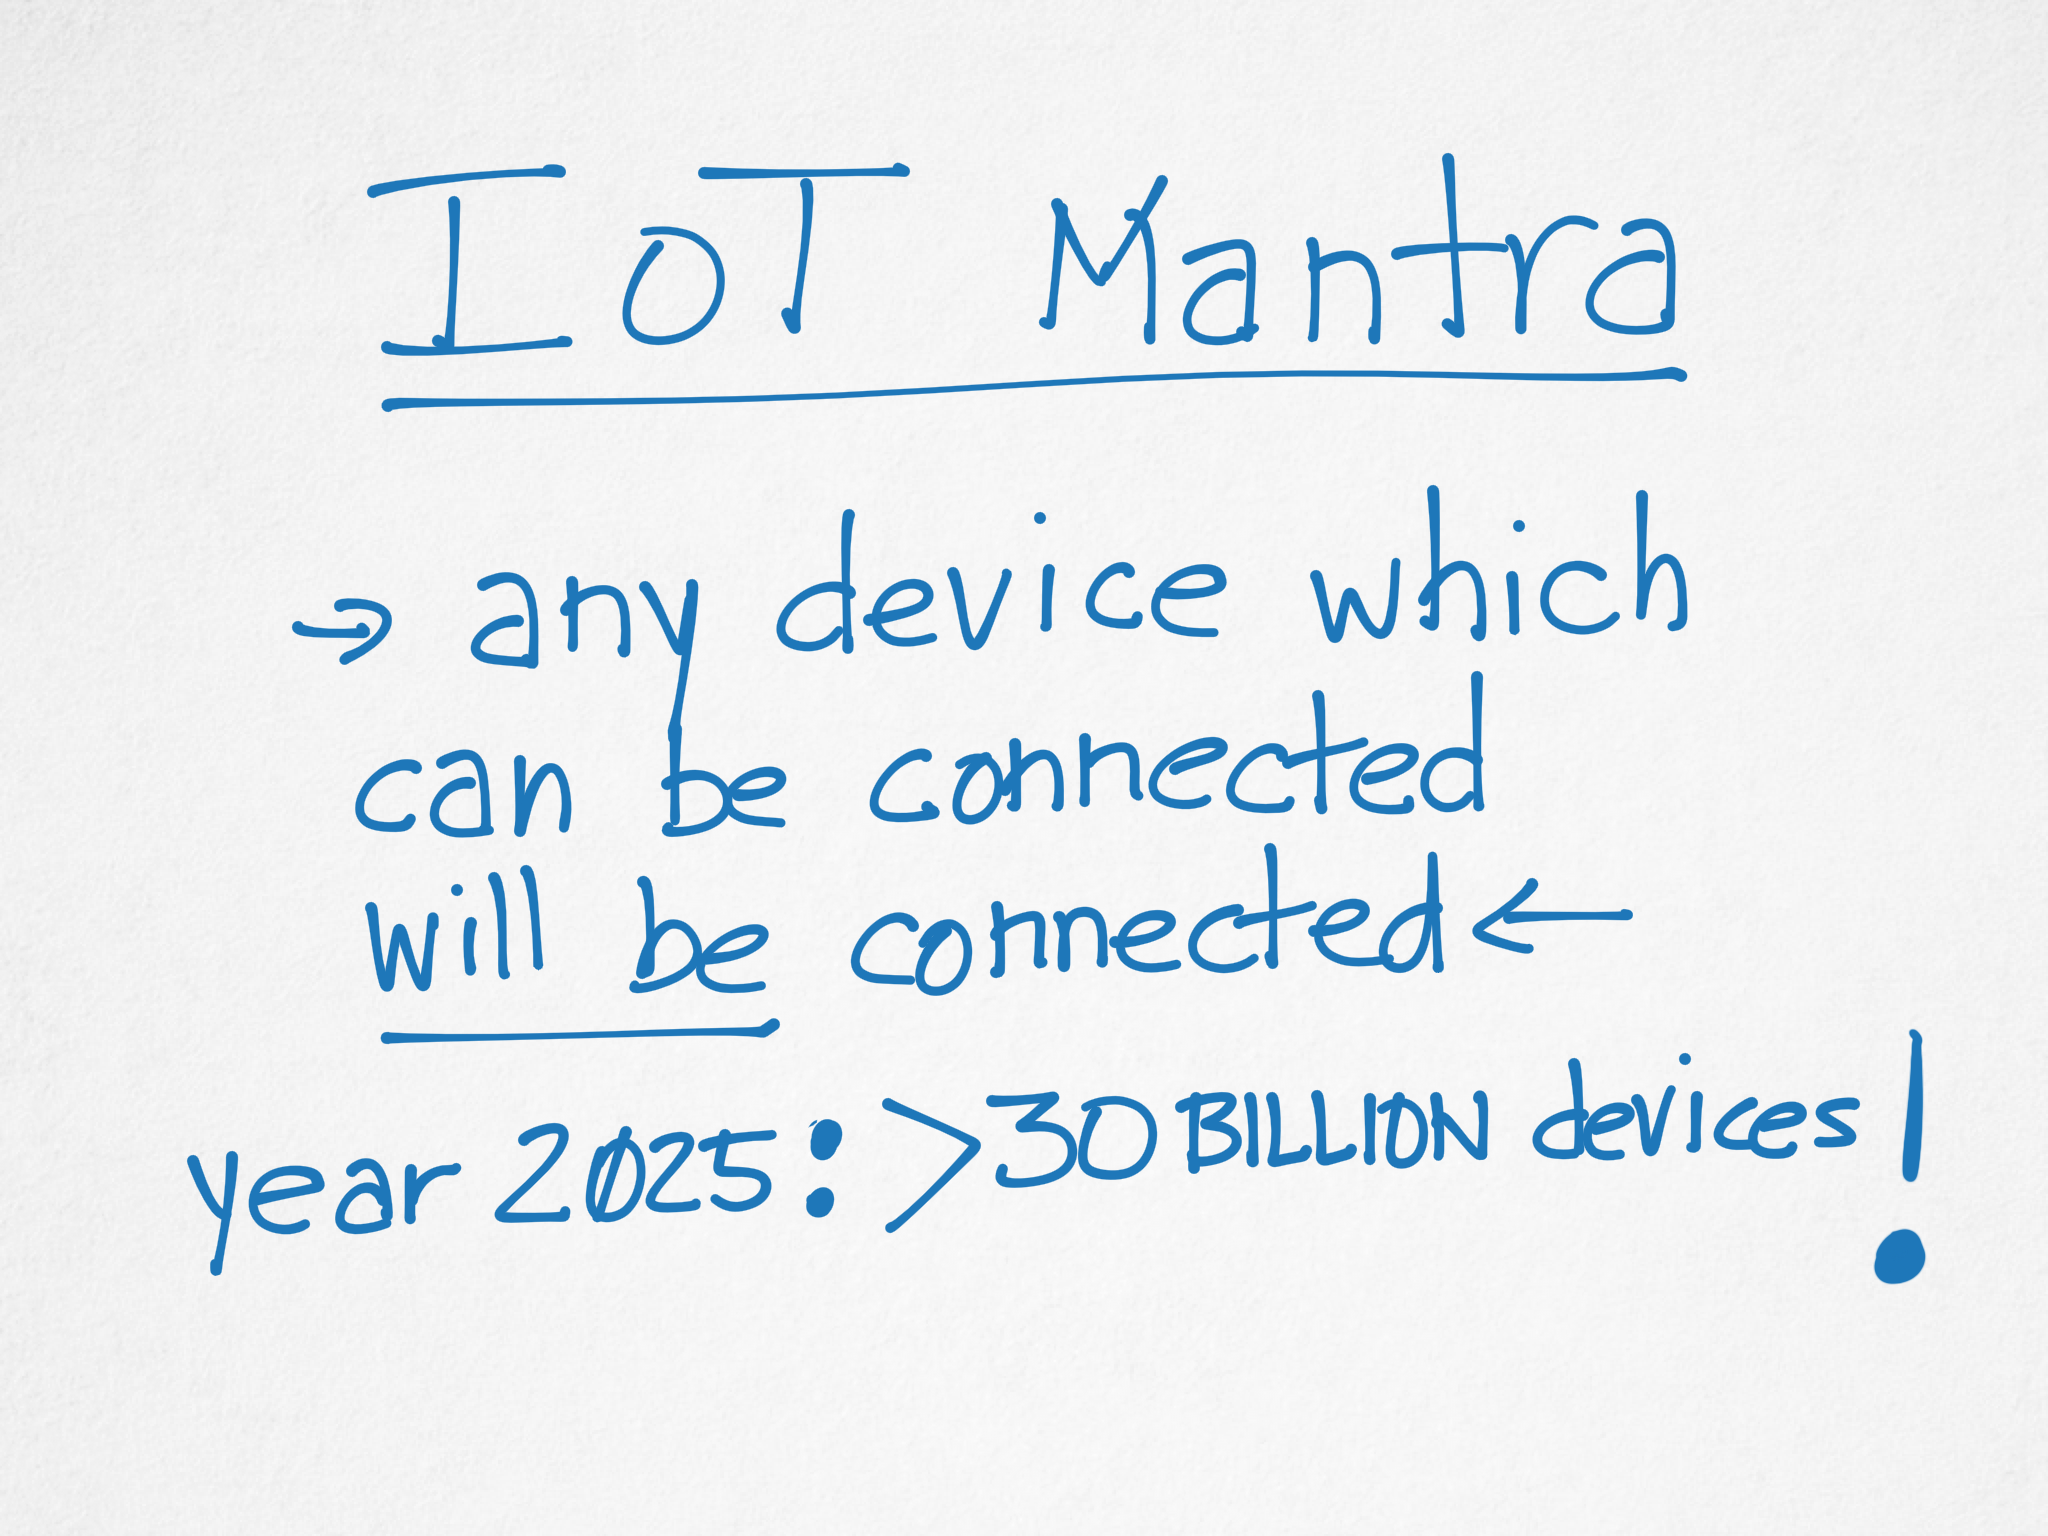 IoT Mantra
→ any device which
can be connected
will be connected ←
year 2025: >30 BILLION devices!